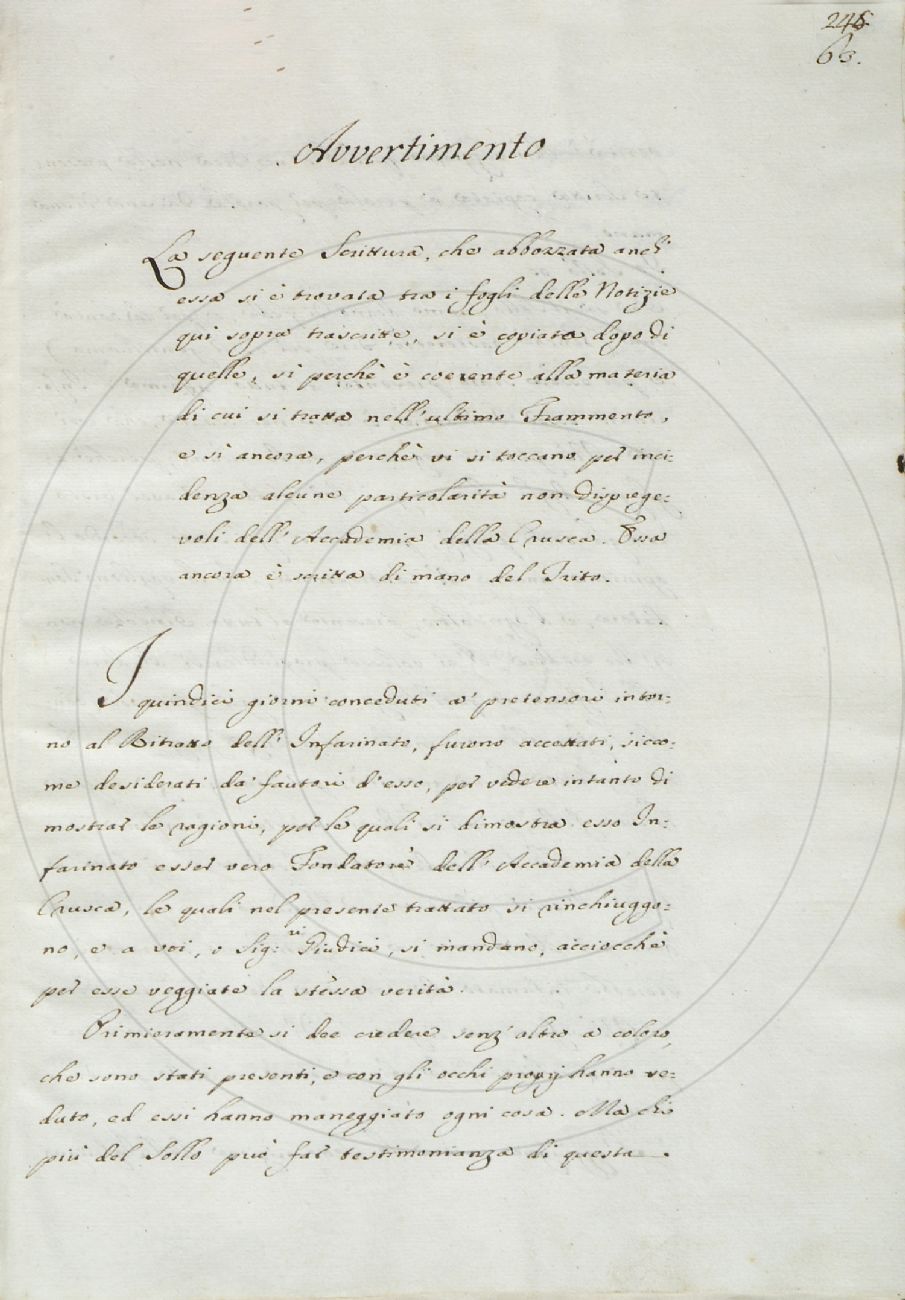 63.
Avvertimento
La seguente Scrittura, che abbozzata anch'
essa si è trovata tra i fogli delle Notizie
qui sopra trascritte, si è copiata dopo di
quelle, sì perchè è coerente alla materia
di cui si tratta nell'ultimo Frammento,
e sì ancora, perchè vi si toccano per inci:
denza alcune particolarità non disprege:
voli dell'Accademia della Crusca. Essa
ancora è scritta di mano del Trito.
I quindici giorni conceduti a' pretensori intor:
no al Ritratto dell'Infarinato, furono accettati, sicco:
me desiderati da' fautori d'esso, per vedere intanto di
mostrar le ragioni, per le quali si dimostra esso In:
farinato esser vero Fondatore dell'Accademia della
Crusca, le quali nel presente trattato si rinchiuggo:
no, e a voi, o Sig:ri Giudici, si mandano, acciocchè
per esse veggiate la stessa verità.
Primieramente si dee credere senz'altro a coloro,
che sono stati presenti, e con gli occhi proprj hanno ve:
duto, ed essi hanno maneggiato ogni cosa. Ma chi
più del Sollo può far testimonianza di questa